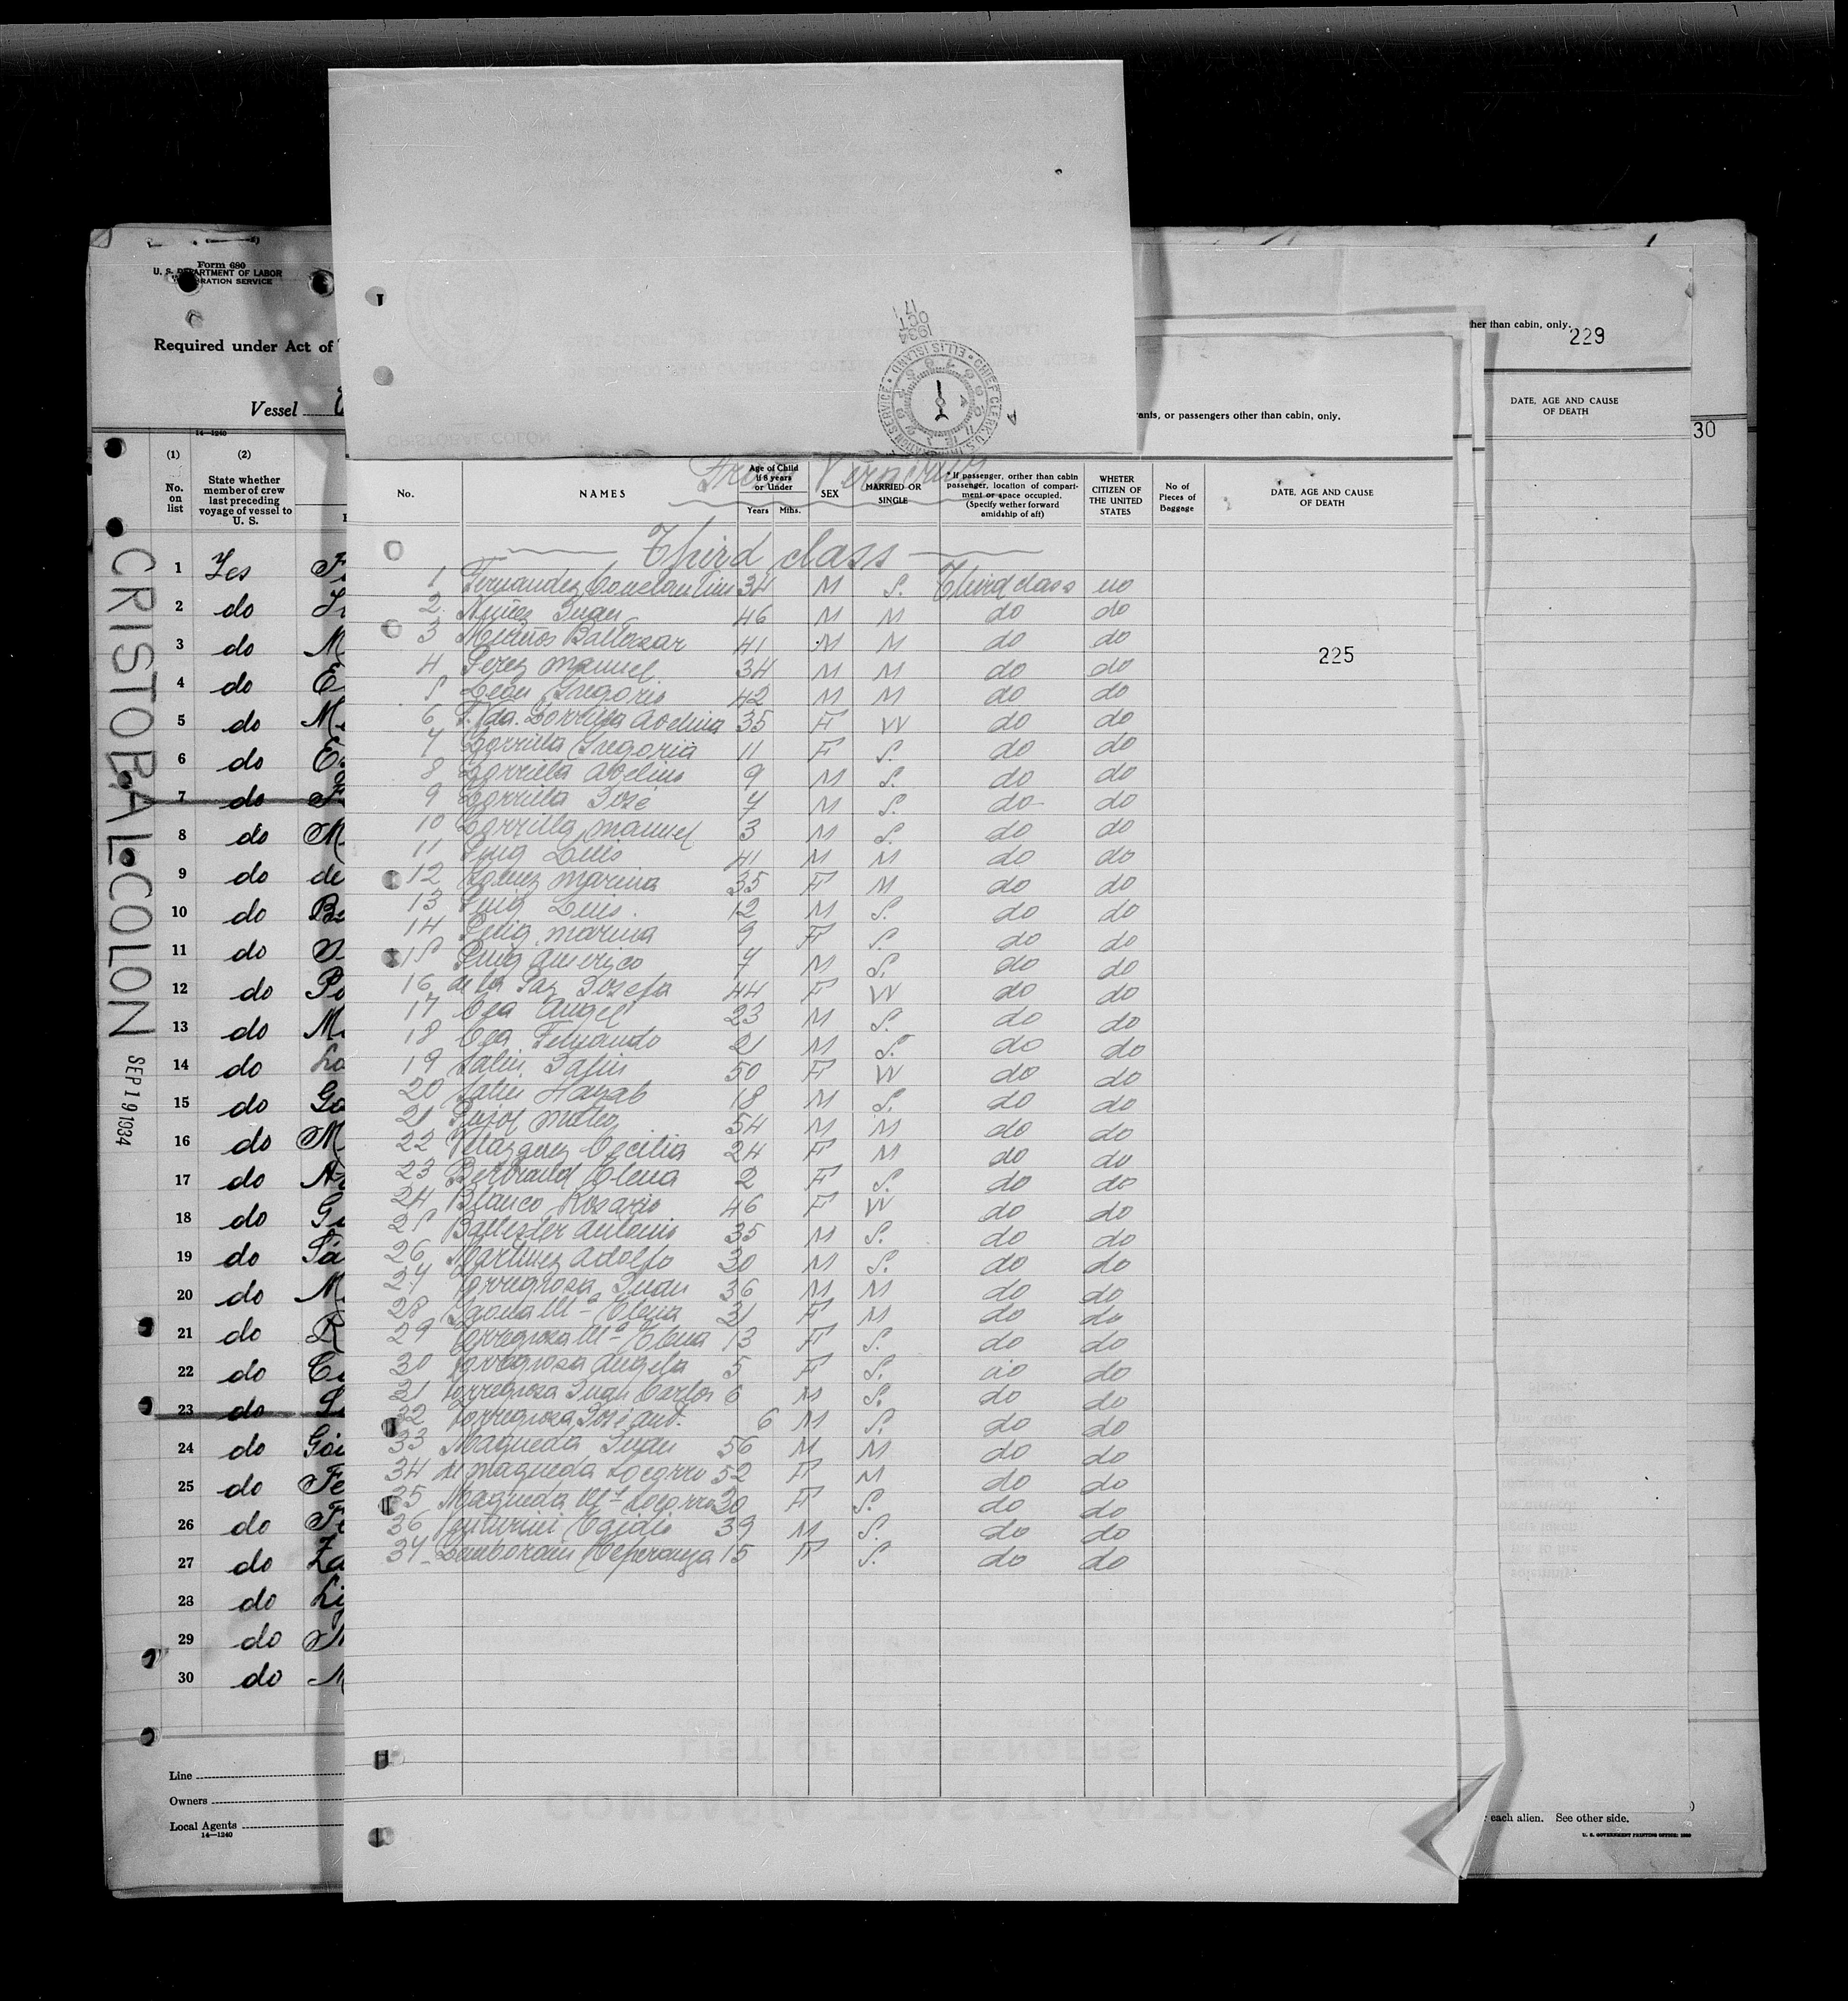 Form 680
U. S. DEPARTMENT OF LABOR
Required under Act of
Vessel
14—1240
(1) (2)
No. on list
State whether member of crew last preceding voyage of vessel to U. S.
CRISTOBAL COLON SEP 19 1934
1 Yes
2 do
3 do
4 do
5 do
6 do
7 do
8 do
9 do
10 do
11 do
12 do
13 do
14 do
15 do
16 do
17 do
18 do
19 do
20 do
21 do
22 do
23 do
24 do
25 do
26 do
27 do
28 do
29 do
30 do
Line
Owners
Local Agents
14—1240
1934
OCT
17
CHIEF CLERK, U.S. IMMIGRATION SERVICE • ELLIS ISLAND
CRISTOBAL COLON
ants, or passengers other than cabin, only.
her than cabin, only.
229
DATE, AGE AND CAUSE OF DEATH
30
From Veracruz
No. NAMES Age of Child if 8 years or Under Years Mths. SEX MARRIED OR SINGLE * If passenger, orither than cabin passenger, location of compartment or space occupied. (Specify wether forward amidship of aft) WHETER CITIZEN OF THE UNITED STATES No of Pieces of Baggage DATE, AGE AND CAUSE OF DEATH
Third class
1 Fernandez Constantino 34 M S. Third class no
2 Nuñez Juan 46 M M do do
3 Baltasar 41 M M do do
225
4 Perez Manuel 34 M M do do
5 Leon Gregorio 42 M M do do
6 Vda. Zorrilla Avelina 35 F W do do
7 Zorrilla Gregoria 11 F S. do do
8 Zorrilla Avelino 9 M S. do do
9 Zorrilla José 7 M S. do do
10 Zorrilla Manuel 3 M S. do do
11 Puig Luis 41 M M do do
12 Gomez Marina 35 F M do do
13 Puig Luis. 12 M S. do do
14 Puig Marina 9 F S. do do
15 Puig Americo 7 M S. do do
16 de la Paz Josefa 44 F W do do
17 Cea Angel 23 M S. do do
18 Cea Fernando 21 M S. do do
19 Salin 50 F W do do
20 Salin 18 M S. do do
21 Pujol Mateo 54 M M do do
22 Velazquez Cecilia 24 F M do do
23 Bertrand Elena 2 F S. do do
24 Blanco Rosario 46 F W do do
25 Ballester Antonio 35 M S. do do
26 Martinez Adolfo 30 M S. do do
27 Torregrosa Juan 36 M M do do
28 Mª Elena 31 F M do do
29 Torregrosa Mª Elena 13 F S. do do
30 Torregrosa Angela 5 F S. do do
31 Torregrosa Juan Carlos 6 M S. do do
32 Torregrosa José Ant. 6 M S. do do
33 Maqueda Juan 56 M M do do
34 de Maqueda Socorro 52 F M do do
35 Maqueda Mª Socorro 30 F S. do do
36 Venturini Egidio 39 M S. do do
37 Zemborain Esperanza 15 F S. do do
each alien. See other side.
U. S. GOVERNMENT PRINTING OFFICE: 1930